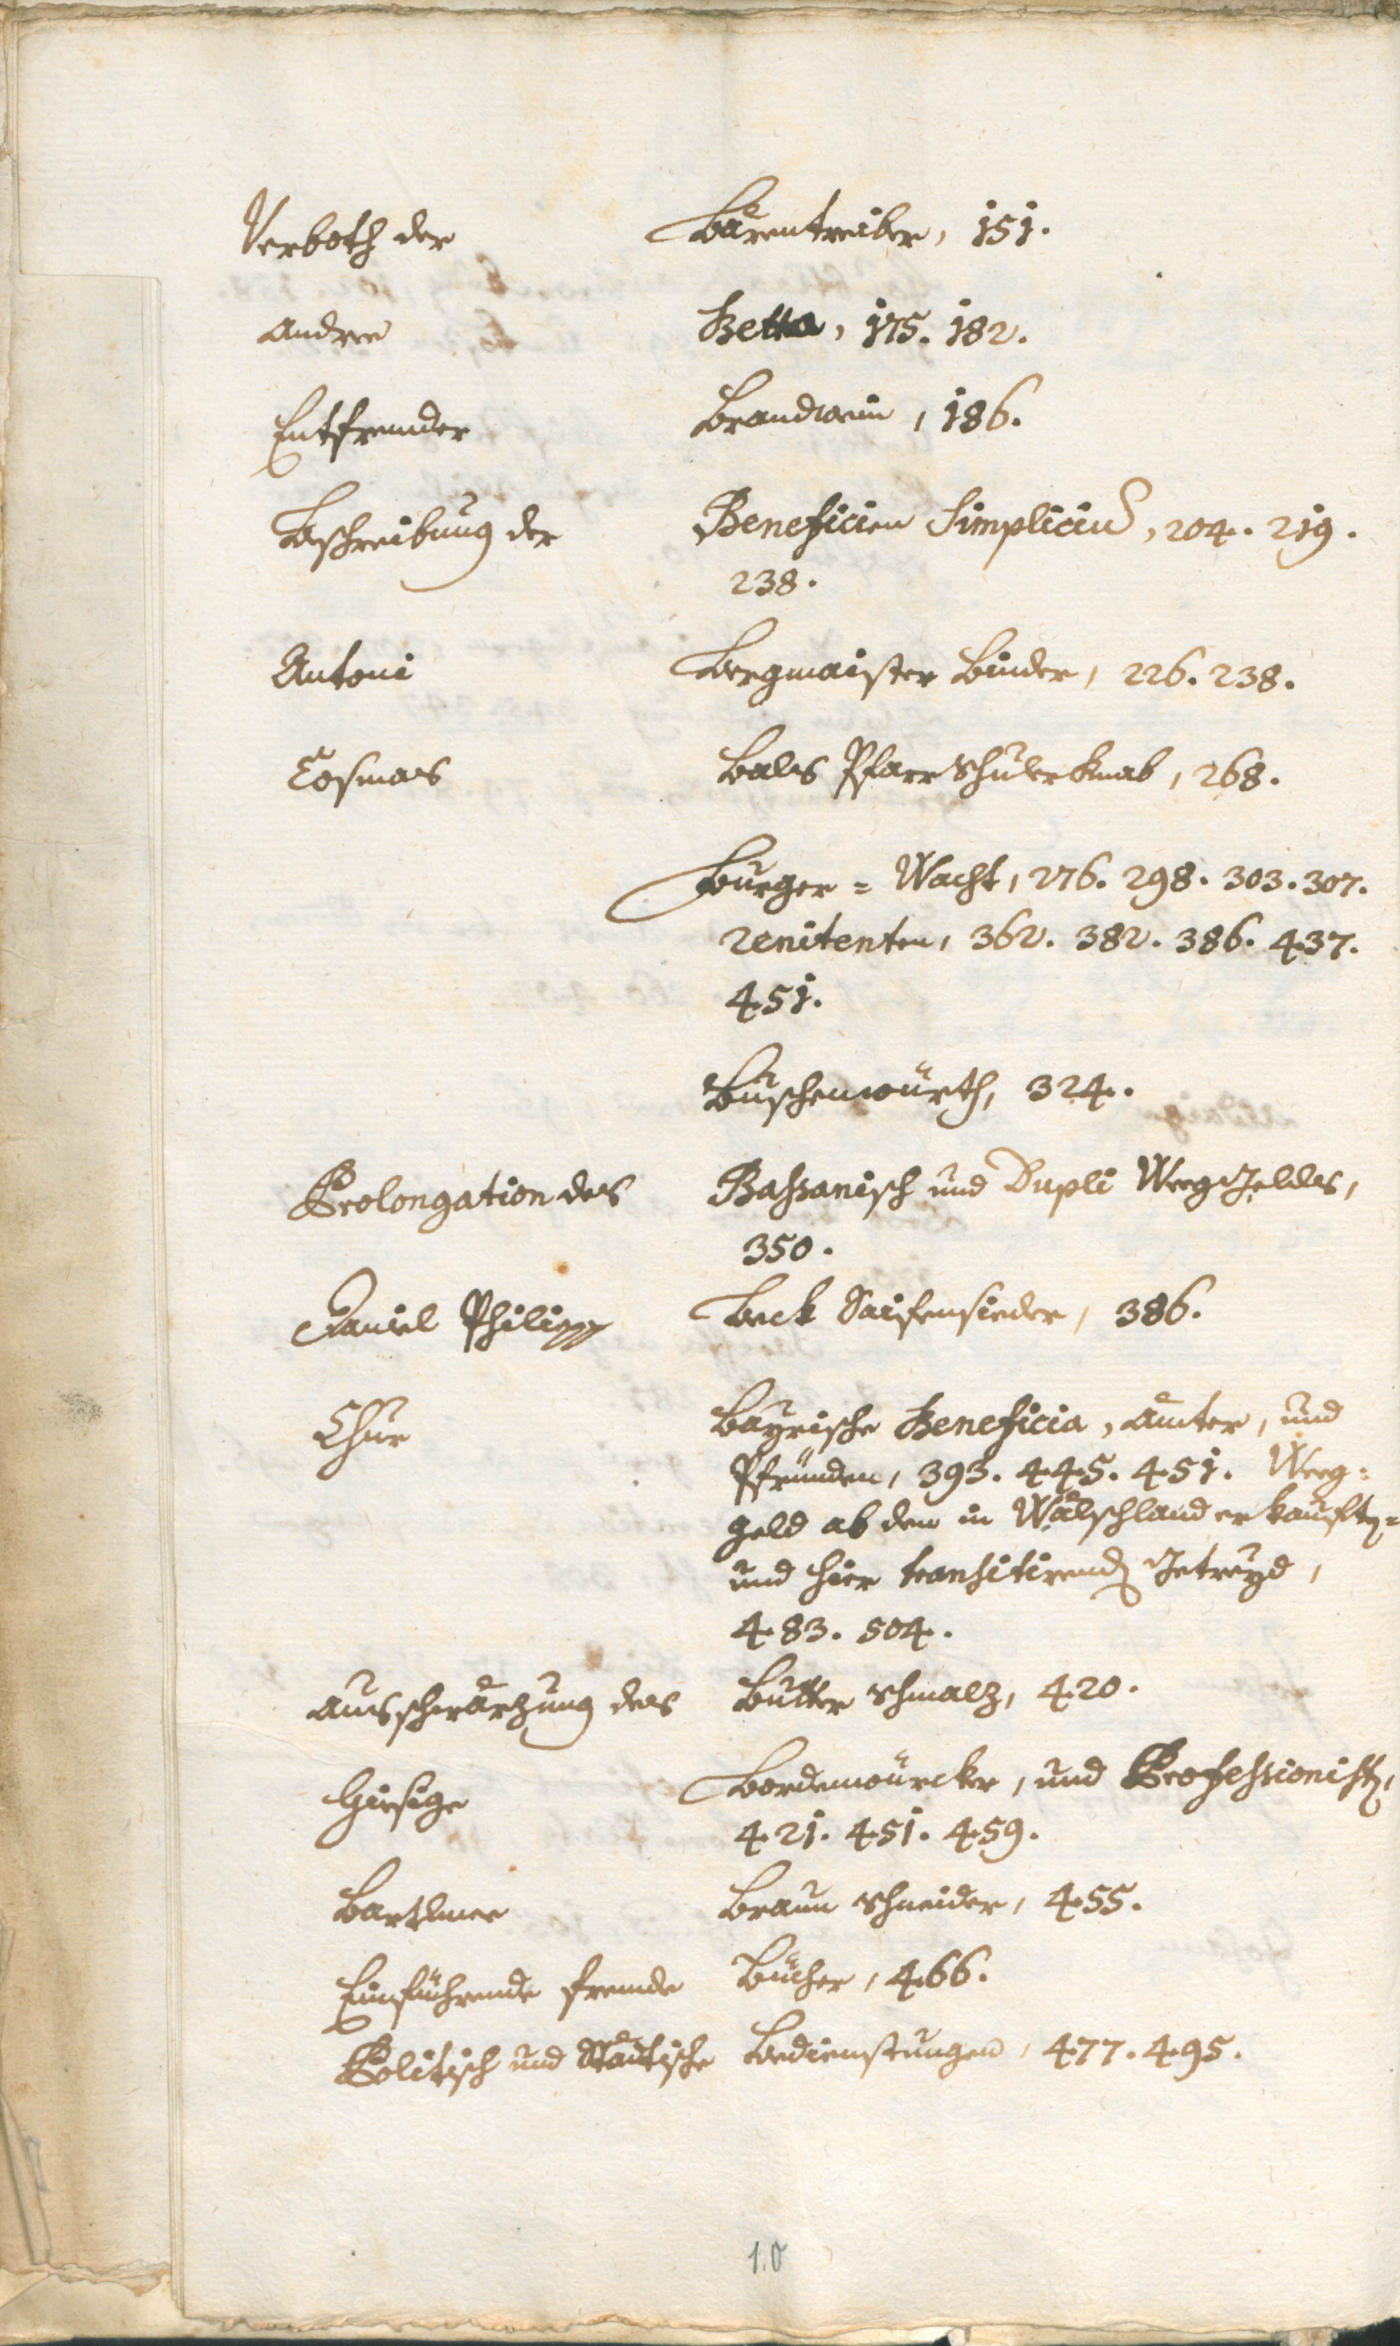 Verboth der Bärentreiber, 151.
Andree Betta, 175. 182.
Entfremder Brandwein, 186.
Beschreibung der Beneficien Simplicium, 204. 219.
238.
Antoni Bergmaister Binder, 226. 238.
Cosmas Bals Pfarrschuler Knab, 268.
Burger = Wacht, 276. 298. 303. 307.
renitenten, 362. 382. 386. 437.
451.
Buschenwürth, 324.
Prolongation des Bassanisch und Dupli Weeg Geldes,
350.
Daniel Philipp Beck Saifensieder, 386.
Chur Bayrische Beneficia, Ämter, und
Pfründen, 393. 445. 451. Weeg=
geld ab dem in Wälschland erkauften=
und hier transitirenden Getreyd,
483. 504.
Ausschwärzung des Butter Schmalz, 420.
Hiesige Bordenwürcker, und Professionisten,
421. 451. 459.
Bartlmee Braun Schneider, 455.
Einführende fremde Bücher, 466.
Politisch und Stättische Bedienstungen, 477. 495.
10